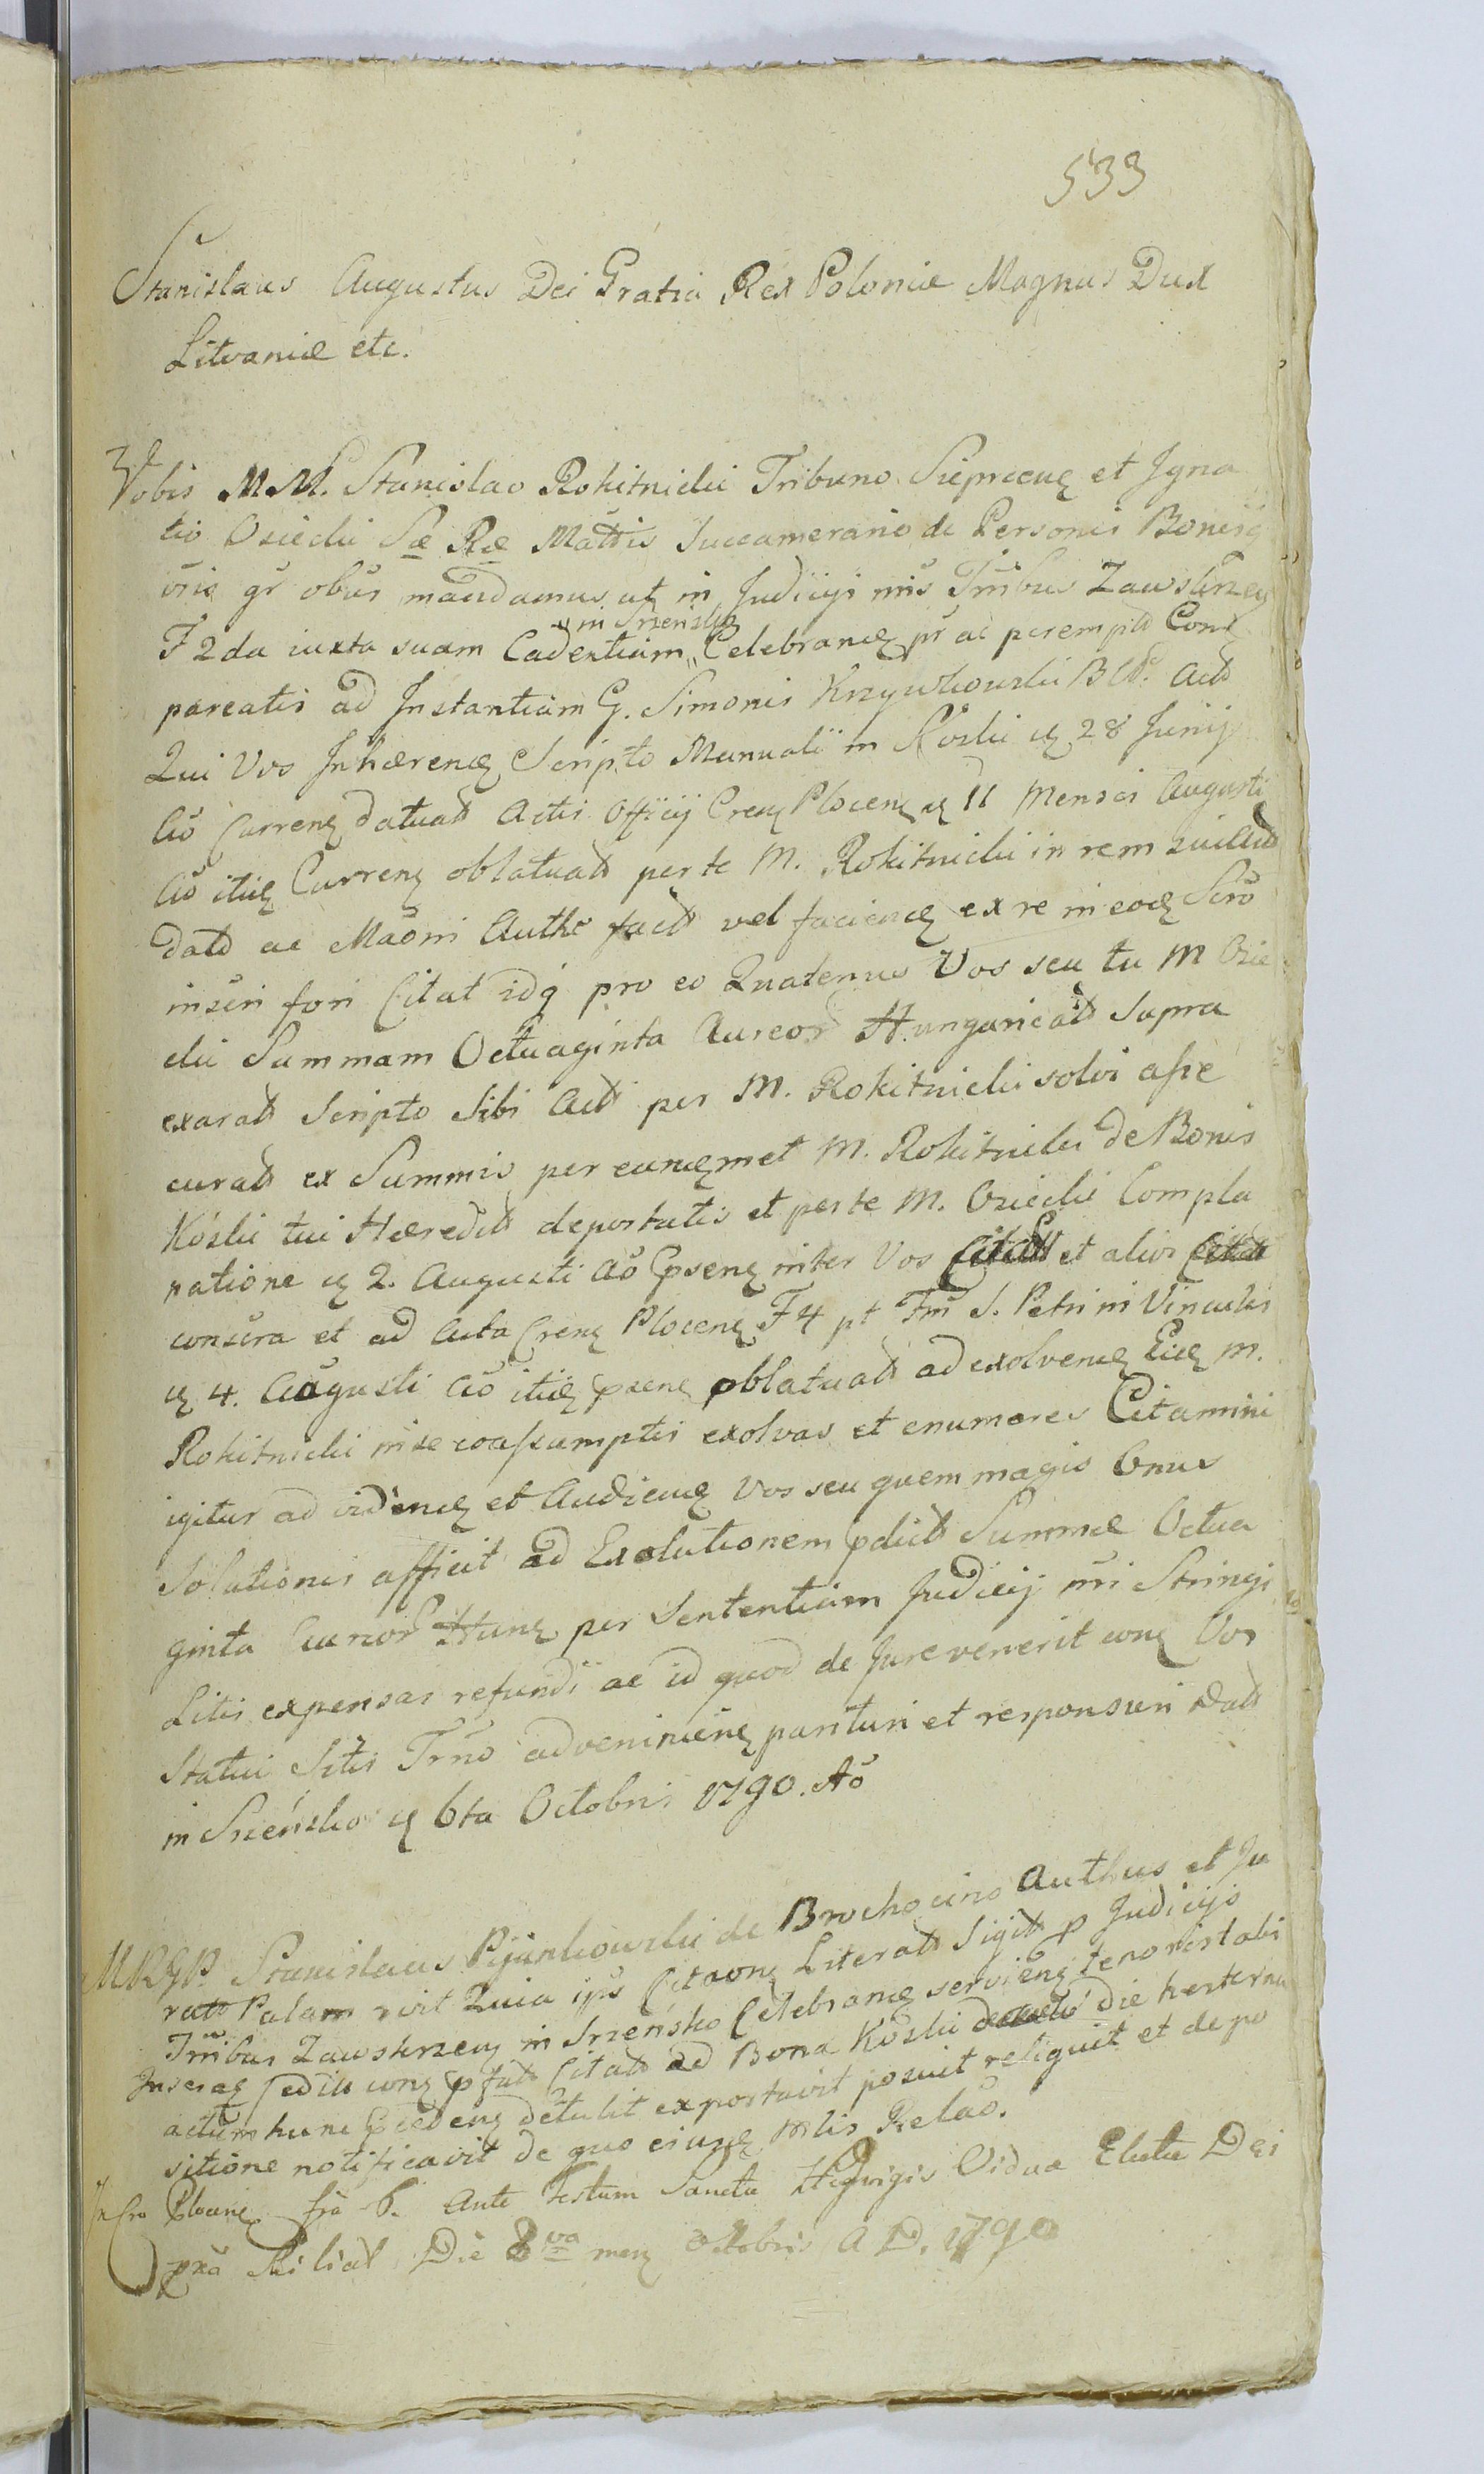 533
Stanislaus Augustus Dei Gratia Rex Poloniæ Magnus Dux
Litvaniæ etc.
Vobis M.M. Stanislao Rokitnicki Tribuno Sieprcenꝫ et Igna
tio Osiecki Sæ Ræ Mattis Succamerario de Personis Bonisq
vris gr obus mandamus ut in Judicijs nris Trnibus Zawskrzen
F 2da iuxta suam Cadentiam „in Srzeńsko„ Celebranꝫ pr ac peremptð Cond
pareatis ad Instantiam G. Simonis Krzywkowski Bᵉ Actð
Qui Vos Inhærenꝫ Scripto Manuali in Koźki ꝫ 28 Junij
Aõ Currenꝫ datuatð Actis Officij Crenꝫ Plocenꝫ ꝫ 11 Mensis Augusti
Aõ itiꝫ Currenꝫ oblatuatð per te M. Rokitnicki in rem sui Actð
datð ac Maõni Authe factð vel facienꝫ ex re in eoꝫ Scrõ
inseri fori Citat idq pro eo Quatenus Vos seu tu M Osie
cki Summam Octuaginta Aureorð Hungaricatð supra
exaratð Scripto Sibi Actð per M. Rokitnicki solvi asse
curatð ex Summis per eunꝫmet M. Rokitnicki de Bonis
Koźki tui Hæreditð deportatis et per te M. Osiecki Compla
natione ꝫ 2. Augusti Aõ Psenꝫ inter Vos Citatð et alios
conscra et ad Acta Crenꝫ Plocenꝫ F 4 pt Fm S. Petri in Vinculis
ꝫ 4. Augusti Aõ itiꝫ psenꝫ oblatuatð ad exolvenꝫ Eiꝫ M.
Rokitnicki in se coassumptis exolvas et enumeres Citamini
igitur ad videnꝫ et Audienꝫ Vos seu quem magis Onus
Solutionis afficit ad Exolutionem pdictð Summæ Octua
ginta Aureor Hunꝫ per Sententiam Judicij nri Stringi
Litis expensas refundi ac id quod de Jure venerit conꝫ Vos
Statui Sitis Trno adveninenꝫ parituri et responsuri Datð
in Srzeńsko ꝫ 6ta Octobris 1790. Aõ
MRGP. Stanislaus Pijankowski de Brochocino Authus et Ju
ratð Palam rcvit Quia ijs Citaonꝫ Literatð Sigitð p Judicijs
Trnibus Zawskrzenꝫ in Srzeńsko Celebranꝫ servienꝫ tenoris tabi
Inseraꝫ conꝫ pfatð Citatð ad Bona Koźki die hesterna
actum hunc Pcedenꝫ detulit exportavit posuit reliquit et depo
sitione notificavit de quo eiusꝫ Mlis Relaõ.
In Cro Plocenꝫ fra 6. Ante Festum Sanctæ Hedvigis Viduæ Electæ Dei
pxa Die 8va menꝫ Octobris A D. 1790